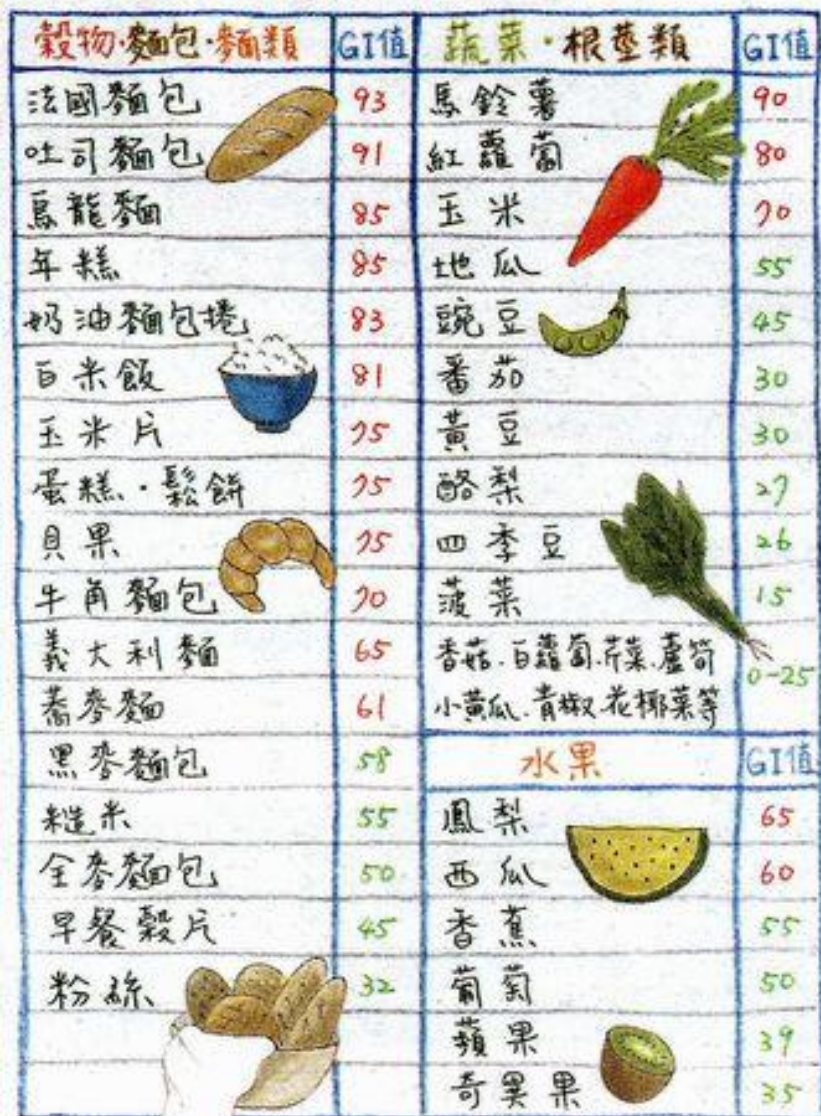 穀物·麵包·麵類 GI值
法國麵包 93
吐司麵包 91
烏龍麵 85
年糕 85
奶油麵包捲 83
白米飯 81
玉米片 75
蛋糕·鬆餅 75
貝果 75
牛角麵包 70
義大利麵 65
蕎麥麵 61
黑麥麵包 58
糙米 55
全麥麵包 50
早餐穀片 45
粉絲 32
蔬菜·根莖類 GI值
馬鈴薯 90
紅蘿蔔 80
玉米 70
地瓜 55
豌豆 45
番茄 30
黃豆 30
酪梨 27
四季豆 26
菠菜 15
香菇.白蘿蔔.芹菜.蘆筍
小黃瓜.青椒.花椰菜等 0-25
水果 GI值
鳳梨 65
西瓜 60
香蕉 55
葡萄 50
蘋果 39
奇異果 35